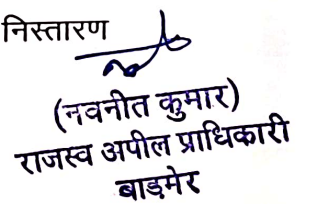 निस्तारण
(नवनीत कुमार)
राजस्व अपील प्राधिकारी
बाड़मेर